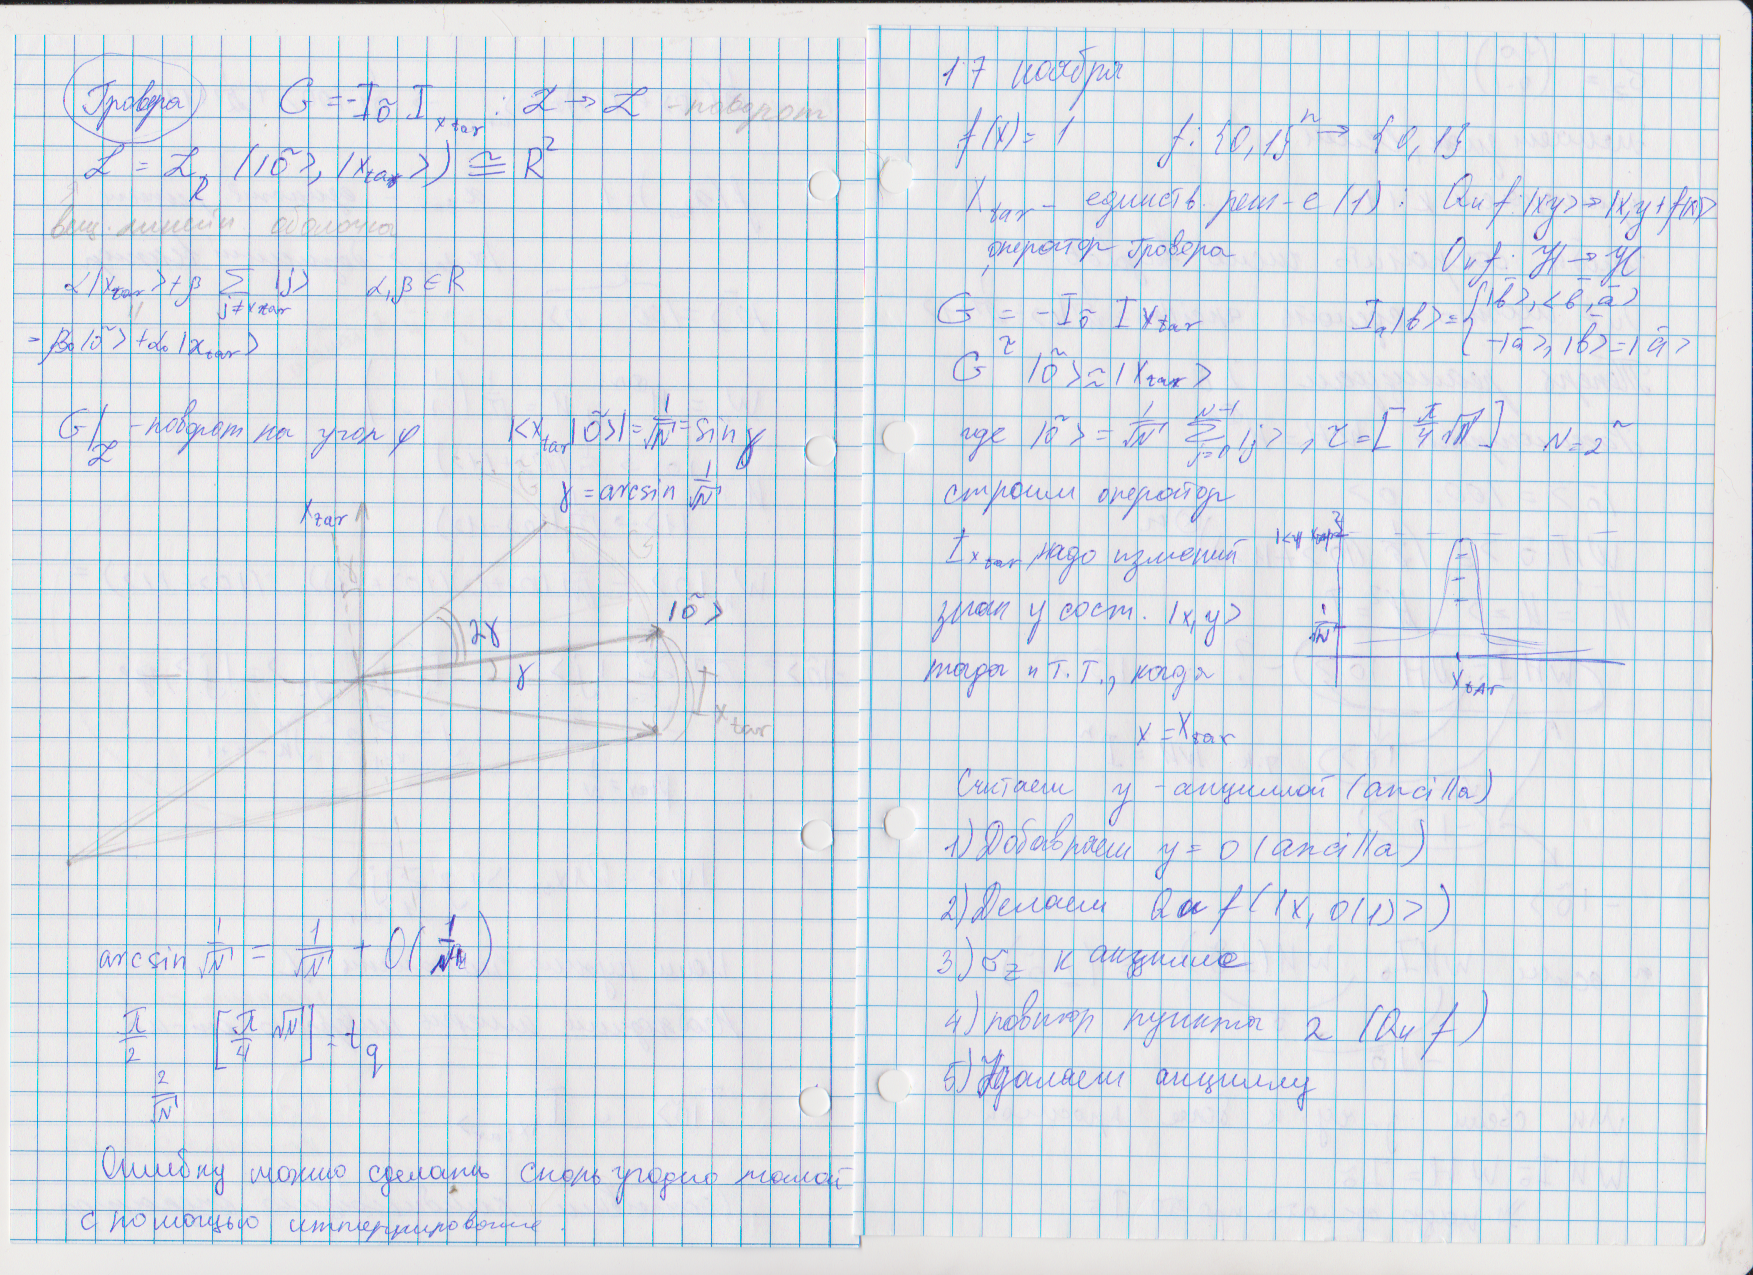 Гровера
G = -I_õ I_{x_tar} : ℒ → ℒ - поворот
ℒ = ℒ_R (|õ>, |x_tar>) ≅ R^2
вещ. линейн оболочка
α|x_tar> + β Σ_{j≠x_tar} |j>   α, β ∈ R
= β_0|õ> + α_0|x_tar>
G/_ℒ - поворот на угол φ   |<x_tar|õ>| = 1/√N = sin γ
γ = arcsin 1/√N
x_tar
|õ>
2γ
γ
I_{x_tar}
arcsin 1/√N = 1/√N + O(
π/2   [π/4 √N] = t_q
2/√N
Ошибку можно сделать сколь угодно малой
с помощью иттерирование.
17 ноября
f(x) = 1   f: {0,1}^n → {0,1}
x_tar - единств. реш-е (1) :   Qu f: |xy> → |x,y + f(x)>
оператор Гровера   Qu f: H → H
G = -I_õ I_{x_tar}   I_a|b> = { |b>, <b, a>
-|a>, |b> = |a>
G^τ |õ> ≈ |x_tar>
где |õ> = 1/√N Σ_{j=0}^{N-1} |j>, τ = [π/4 √N]   N = 2^n
строим оператор
I_{x_tar}, надо изменит
знак у сост. |x,y>
тогда и т.т., когда
x = x_tar
1/√N
x_tar
Считаем y - анциллой (ancilla)
1) Добавляем y = 0 (ancilla)
2) Делаем Qu f(|x, 0(1)>)
3) σ_z к анцилле
4) повтор пункта 2 (Qu f)
5) Удаляем анциллу